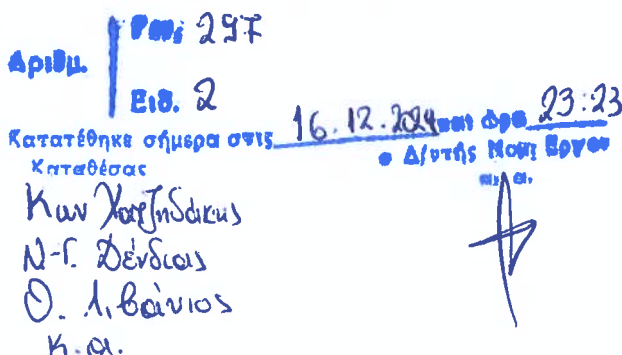 Αριθμ.
Γεν: 297
Ειδ. 2
Κατατέθηκε σήμερα στις 16.12.2024 και ώρα 23:23
Καταθέσας
ο Δ/ντής Νομ. Εργου
Κων Χατζηδάκης
Ν-Γ. Δένδιας
Θ. Λιβάνιος
κ.α.